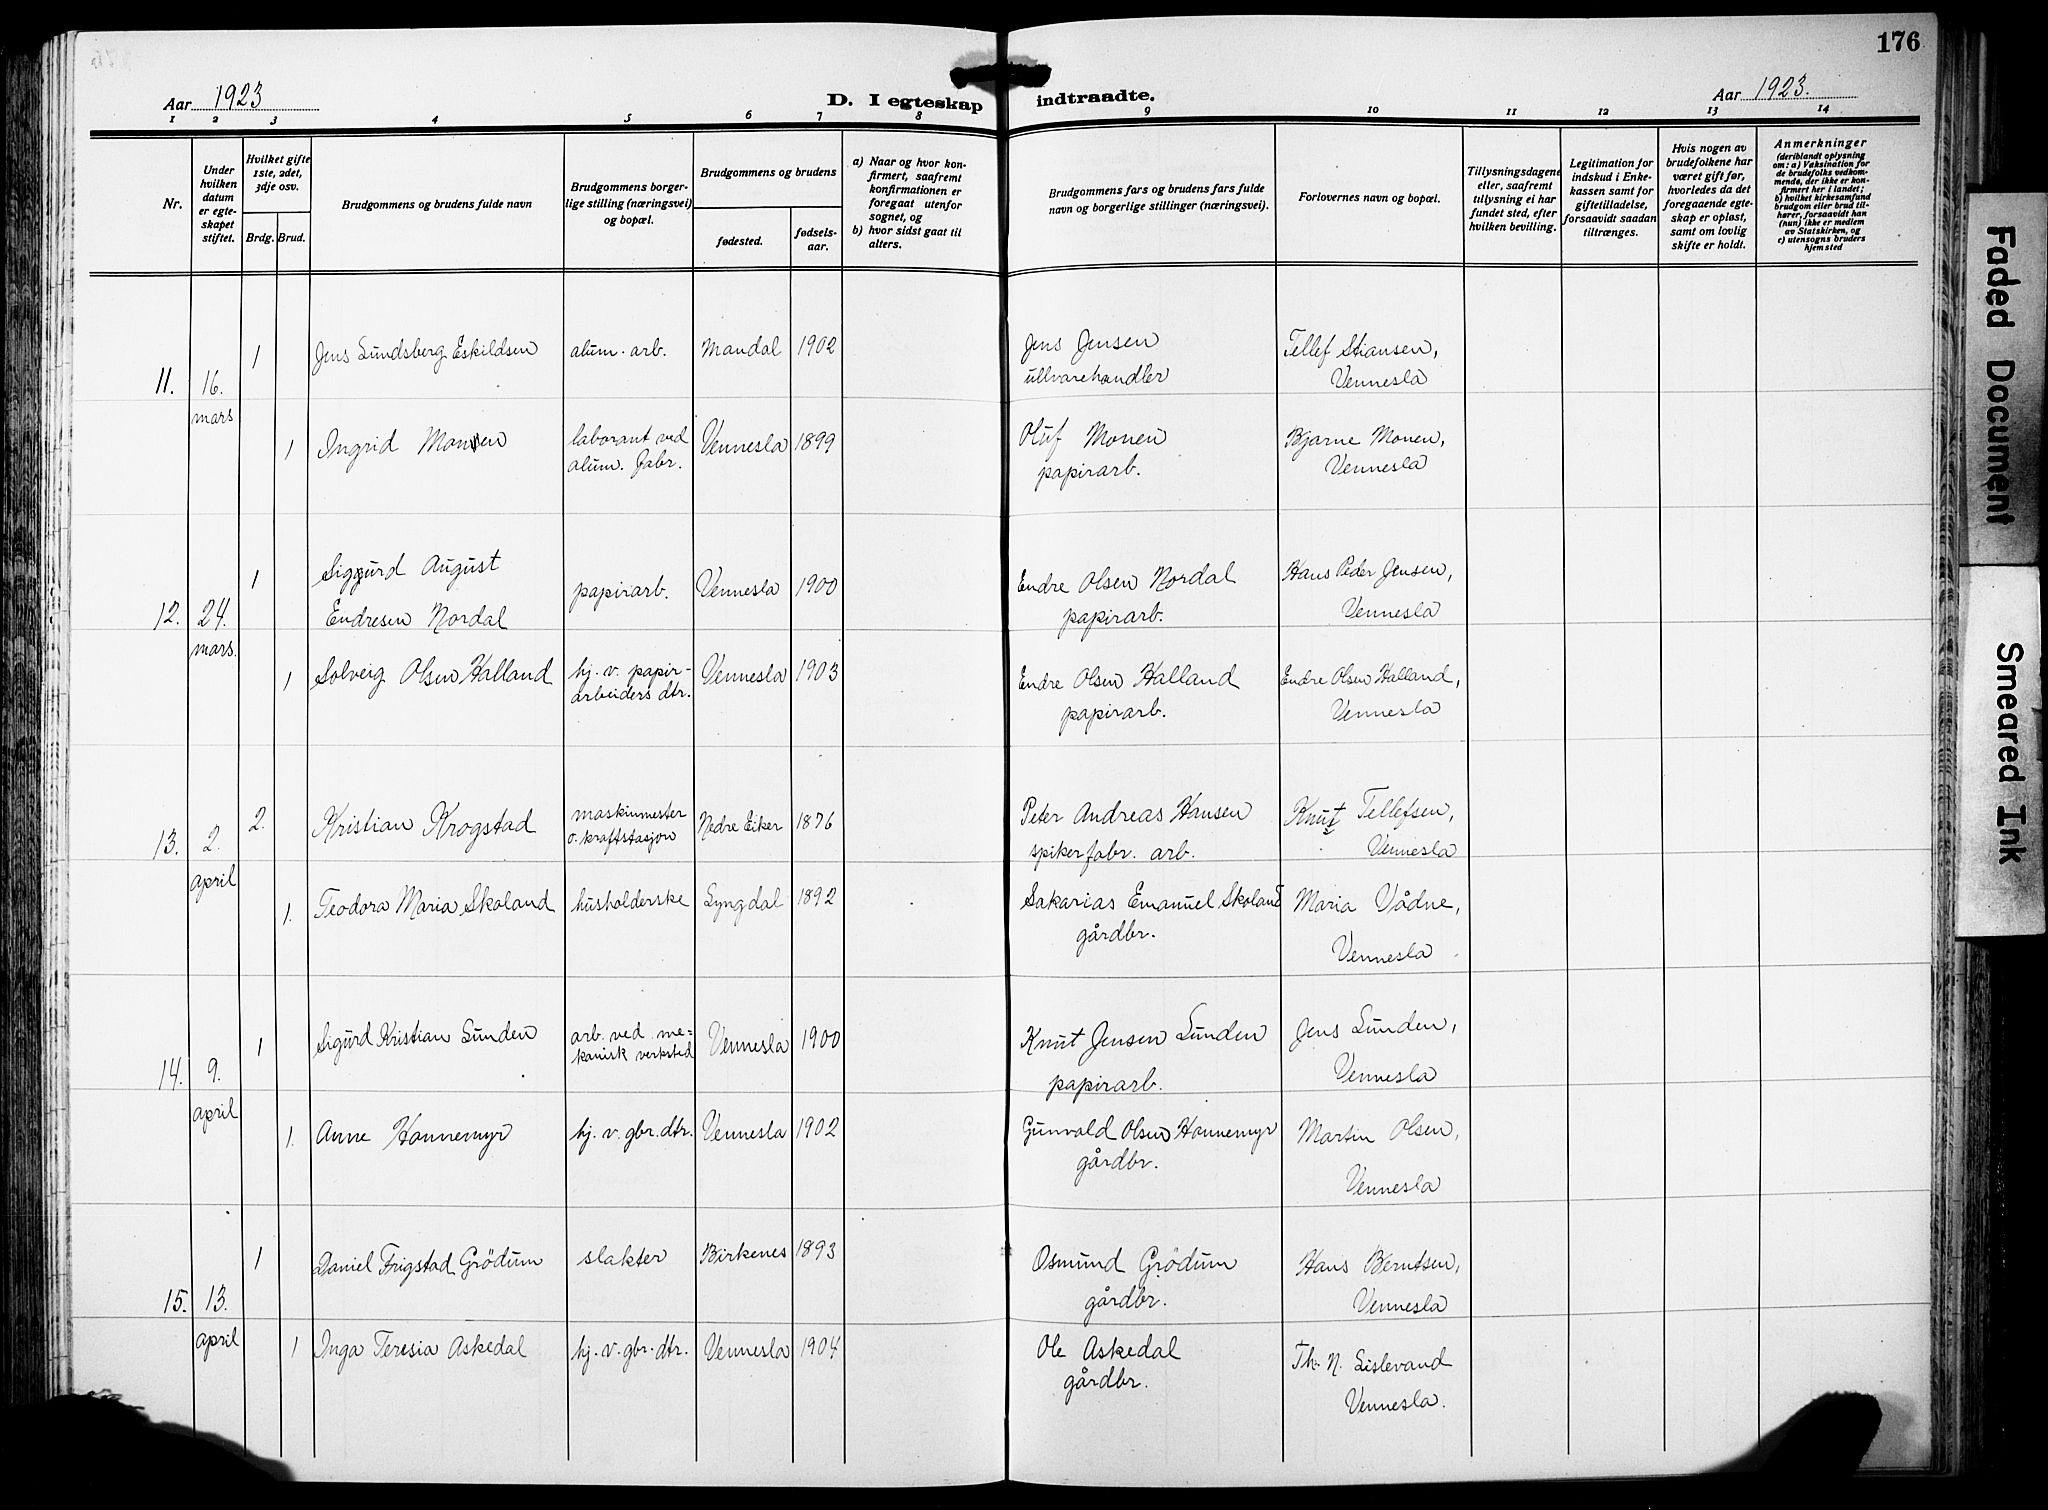 176
Aar 1923
D. I egteskap indtraadte.
Aar 1923.
1 2 3 4 5 6 7 8 9 10 11 12 13 14
Nr.
Under hvilken datum er egteskapet stiftet.
Hvilket gifte 1ste, 2det, 3dje osv.
Brdg. Brud.
Brudgommens og brudens fulde navn
Brudgommens borgerlige stilling (næringsvei) og bopæl.
Brudgommens og brudens
fødested.
fødselsaar.
a) Naar og hvor konfirmert, saafremt konfirmationen er foregaat utenfor sognet, og
b) hvor sidst gaat til alters.
Brudgommens fars og brudens fars fulde navn og borgerlige stillinger (næringsvei).
Forlovernes navn og bopæl.
Tillysningsdagene eller, saafremt tillysning ei har fundet sted, efter hvilken bevilling.
Legitimation for indskud i Enkekassen samt for giftetilladelse, forsaavidt saadan tiltrænges.
Hvis nogen av brudefolkene har været gift før, hvorledes da det foregaaende egteskap er opløst, samt om lovlig skifte er holdt.
Anmerkninger
(deriblandt oplysning om: a) Vaksination for de brudefolks vedkommende, der ikke er konfirmert her i landet; b) hvilket kirkesamfund brudgom eller brud tilhører, forsaavidt han (hun) ikke er medlem av Statskirken, og c) utensogns bruders hjemsted
11. 16. mars
1 Jens Lundsberg Eskildsen alum. arb. Mandal 1902 Jens Jensen ullvarehandler Tellef Stiansen, Vennesla
1 Ingrid Monen laborant ved alum. fabr. Vennesla 1899 Oluf Monen papirarb. Bjarne Monen, Vennesla
12. 24. mars.
1 Sigurd August Endresen Nordal papirarb. Vennesla 1900 Endre Olsen Nordal papirarb. Hans Peder Jensen, Vennesla
1 Solveig Olsen Halland hj. v. papirarbeiders dtr. Vennesla 1903 Endre Olsen Halland papirarb. Endre Olsen Halland, Vennesla
13. 2. april
2. Kristian Krogstad maskinmester v. kraftstasjon Nedre Eiker 1876 Peter Andreas Hansen spikerfabr. arb. Knut Tellefsen, Vennesla
1. Teodora Maria Skoland husholderske Lyngdal 1892 Sakarias Emanuel Skoland gårdbr. Maria Vådne, Vennesla
14. 9. april
1 Sigurd Kristian Lunden arb. ved mekanisk verksted Vennesla 1900 Knut Jensen Lunden papirarb. Jens Lunden, Vennesla
1. Anne Hannemyr hj. v. gbr. dtr. Vennesla 1902 Gunvald Olsen Hannemyr gårdbr. Martin Olsen, Vennesla
15. 13. april
1 Daniel Frigstad Grödum slakter Birkenes 1893 Osmund Grödum gårdbr. Hans Berntsen, Vennesla
1 Inga Teresia Askedal hj. v. gbr. dtr. Vennesla 1904 Ole Askedal gårdbr. Th. N. Lislevand Vennesla.
Faded Document
Smeared Ink